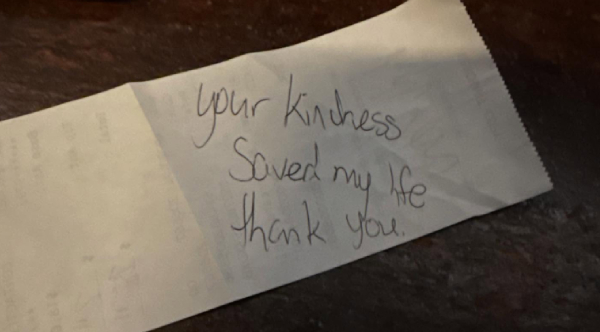 your kindness
Saved my life
thank you.